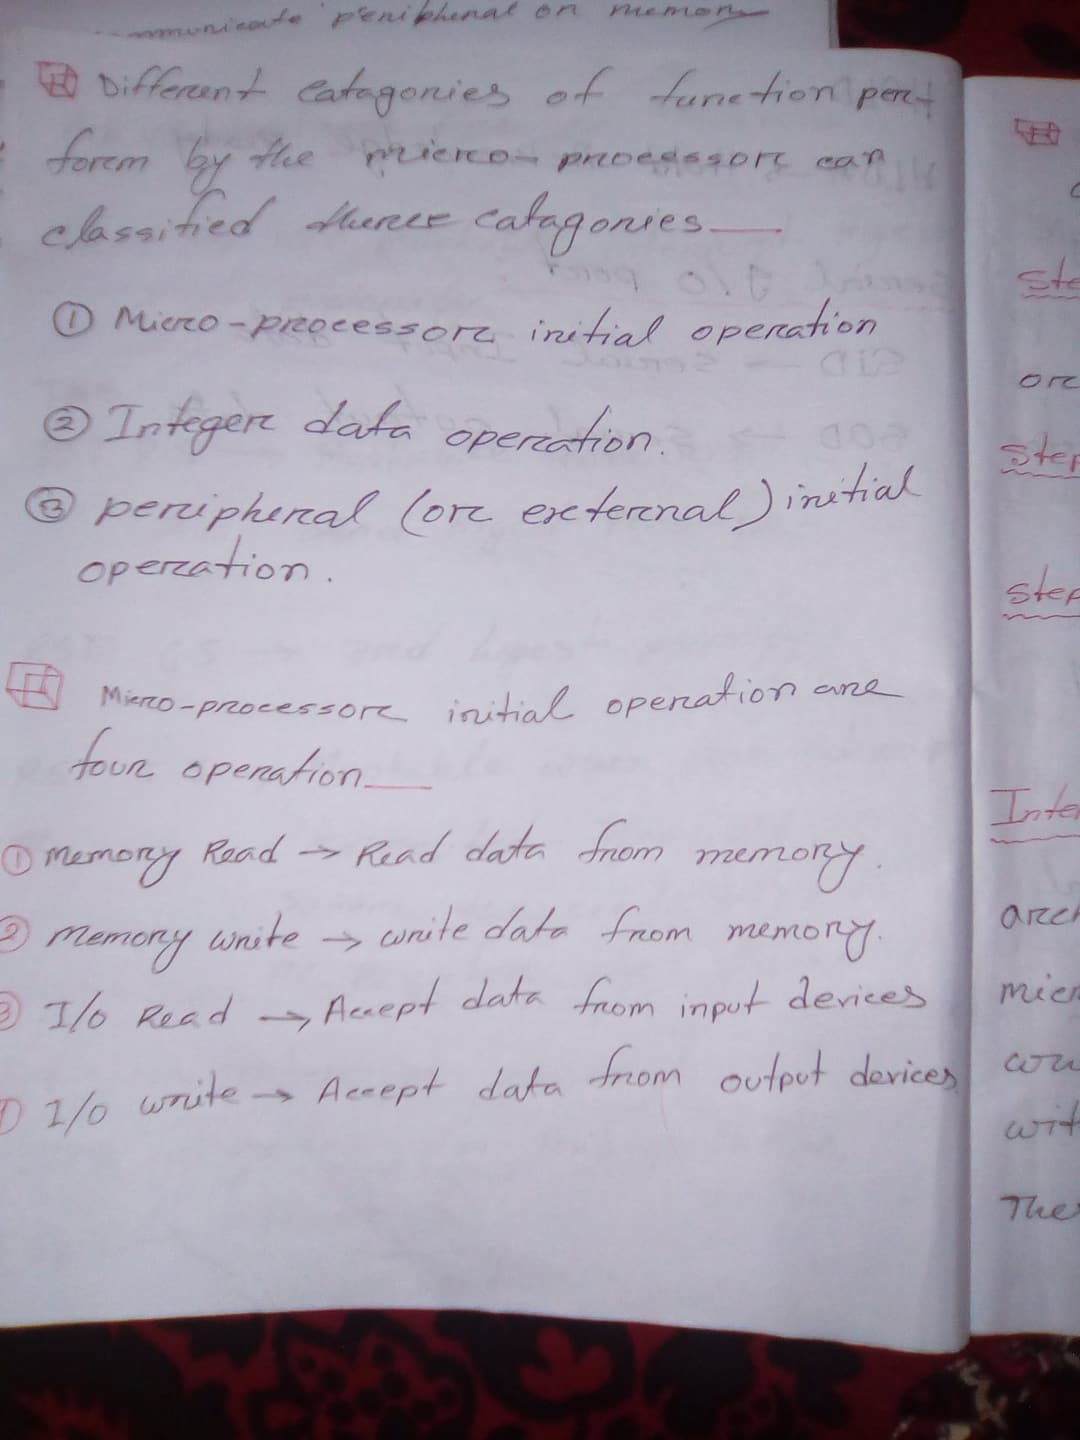 peripheral on memory
Different Catagories of function per-
form by the micro-processor can
classified three catagories
① Micro-processor initial operation
② Integer data operation.
③ peripheral (or external) initial
operation.
Micro-processor initial operation are
four operation
① Memory Read → Read data from memory.
② Memory write → write data from memory.
③ I/o Read → Accept data from input devices
I/o write → Accept data from output devices
or
The